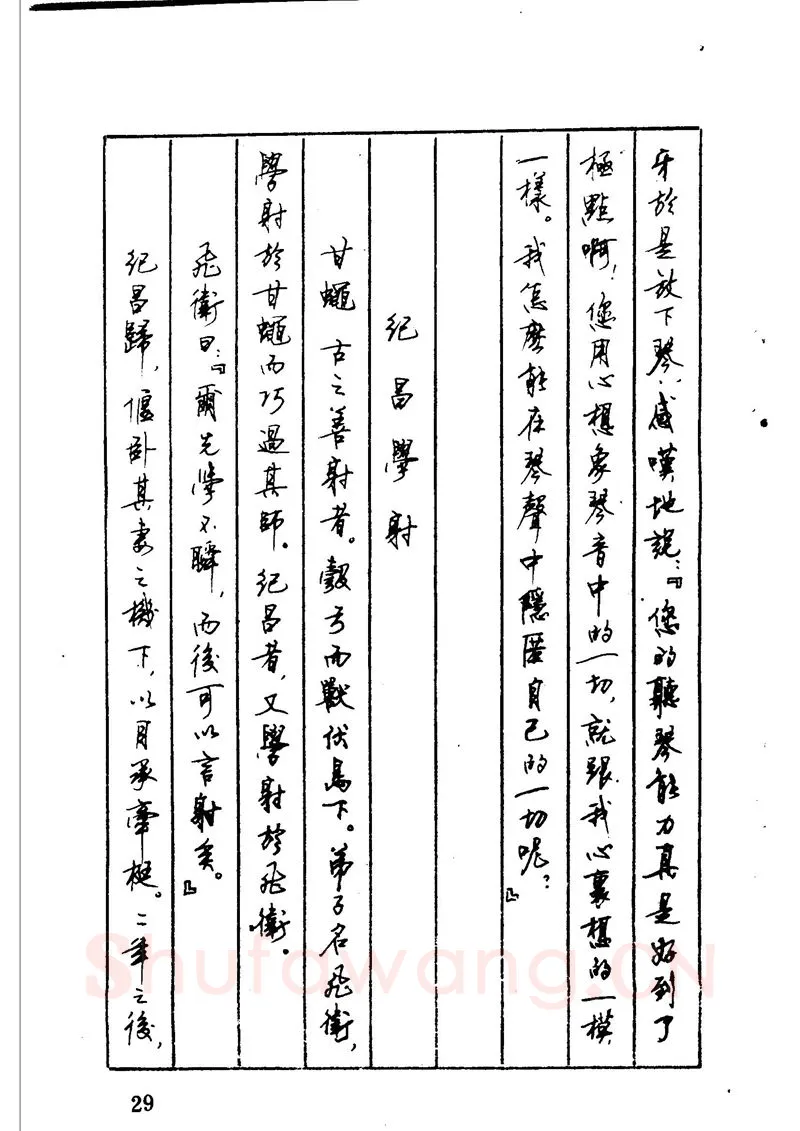 牙於是放下琴，感嘆地説：『您的聽琴能力真是好到了
極點啊！您用心想象琴音中的一切，就跟我心裏想的一模
一樣。我怎麽能在琴聲中隱匿自己的一切呢？』
紀昌學射
甘蠅　古之善射者。彀弓而獸伏鳥下。弟子名飛衛，
學射於甘蠅而巧過其師。紀昌者，又學射於飛衛。
飛衛曰：『爾先學不瞬，而後可以言射矣。』
紀昌歸，偃卧其妻之機下，以目承牽挺。二年之後，
Shufawang.CN
29